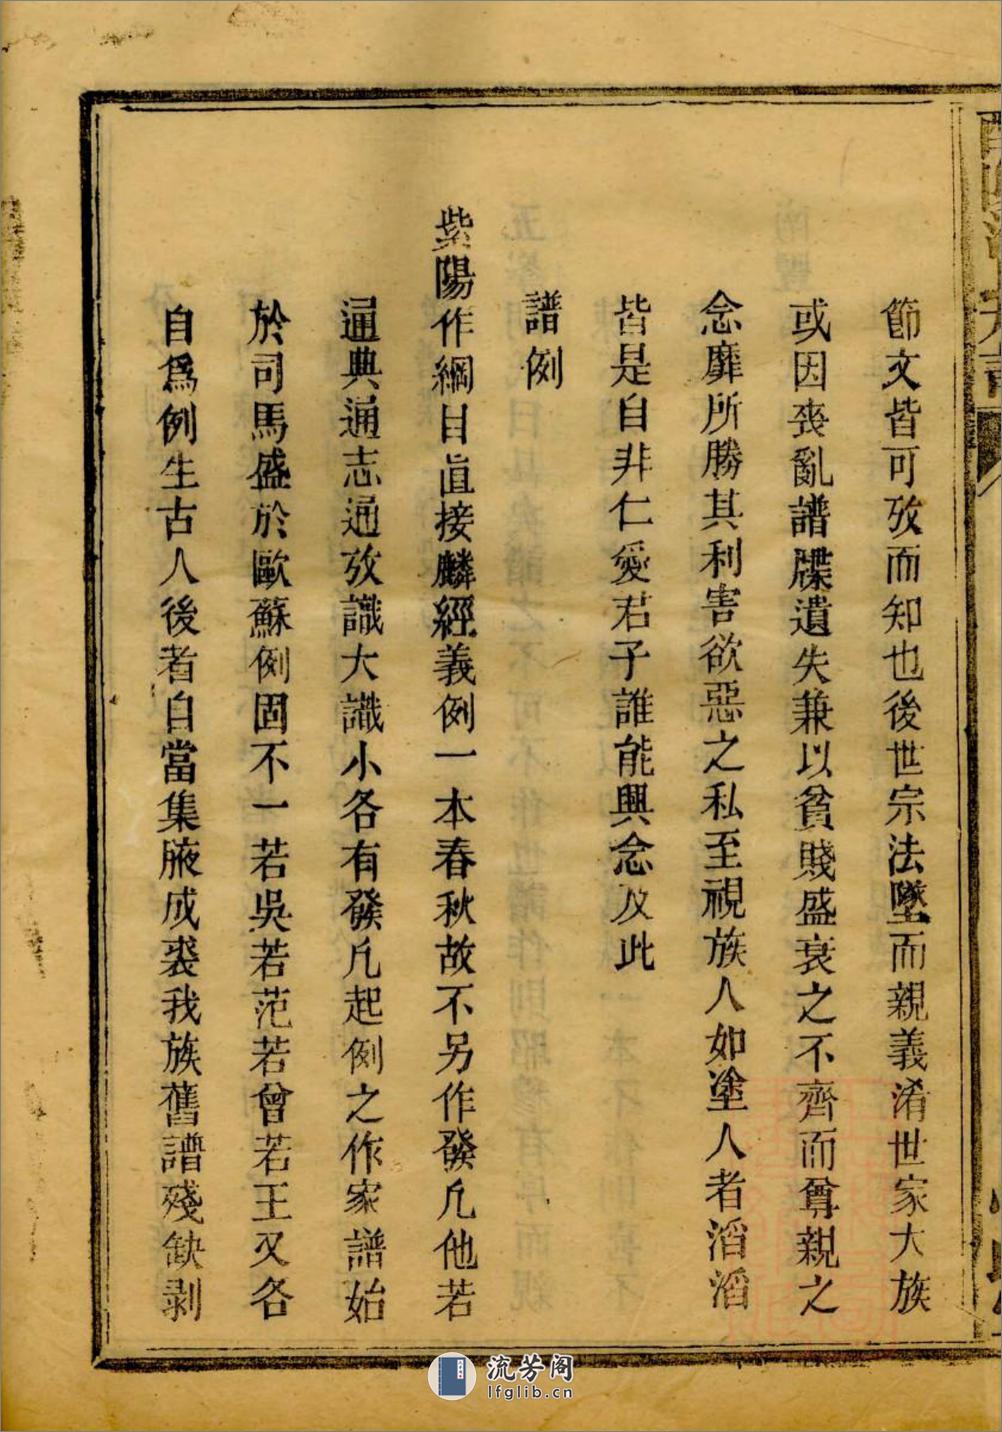 節文皆可攷而知也後世宗法墜而親義淆世家大族
或因喪亂譜牒遺失兼以貧賤盛衰之不齊而尊親之
念靡所勝其利害欲惡之私至視族人如塗人者滔滔
皆是自非仁愛君子誰能興念及此
譜例
紫陽作綱目直接麟經義例一本春秋故不另作發凡他若
通典通志通攷識大識小各有發凡起例之作家譜始
於司馬盛於歐蘇例固不一若吳若范若曾若王又各
自爲例生古人後者自當集腋成裘我族舊譜殘缺剥
流芳阁
lfglib.cn